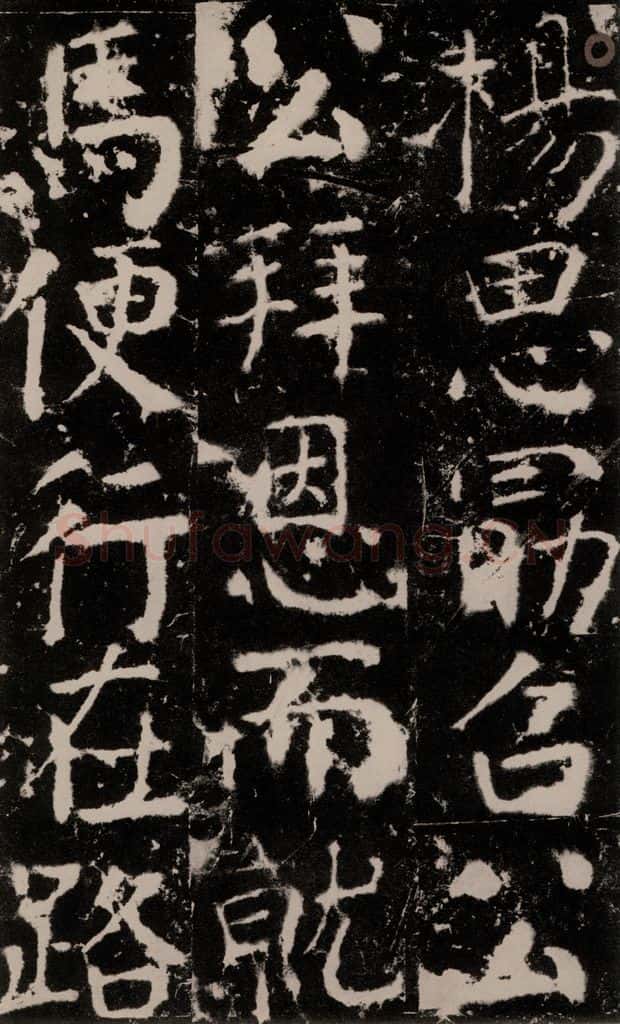 楊思勖召公
公拜恩而就
馬便行在路
Shufawang.CN